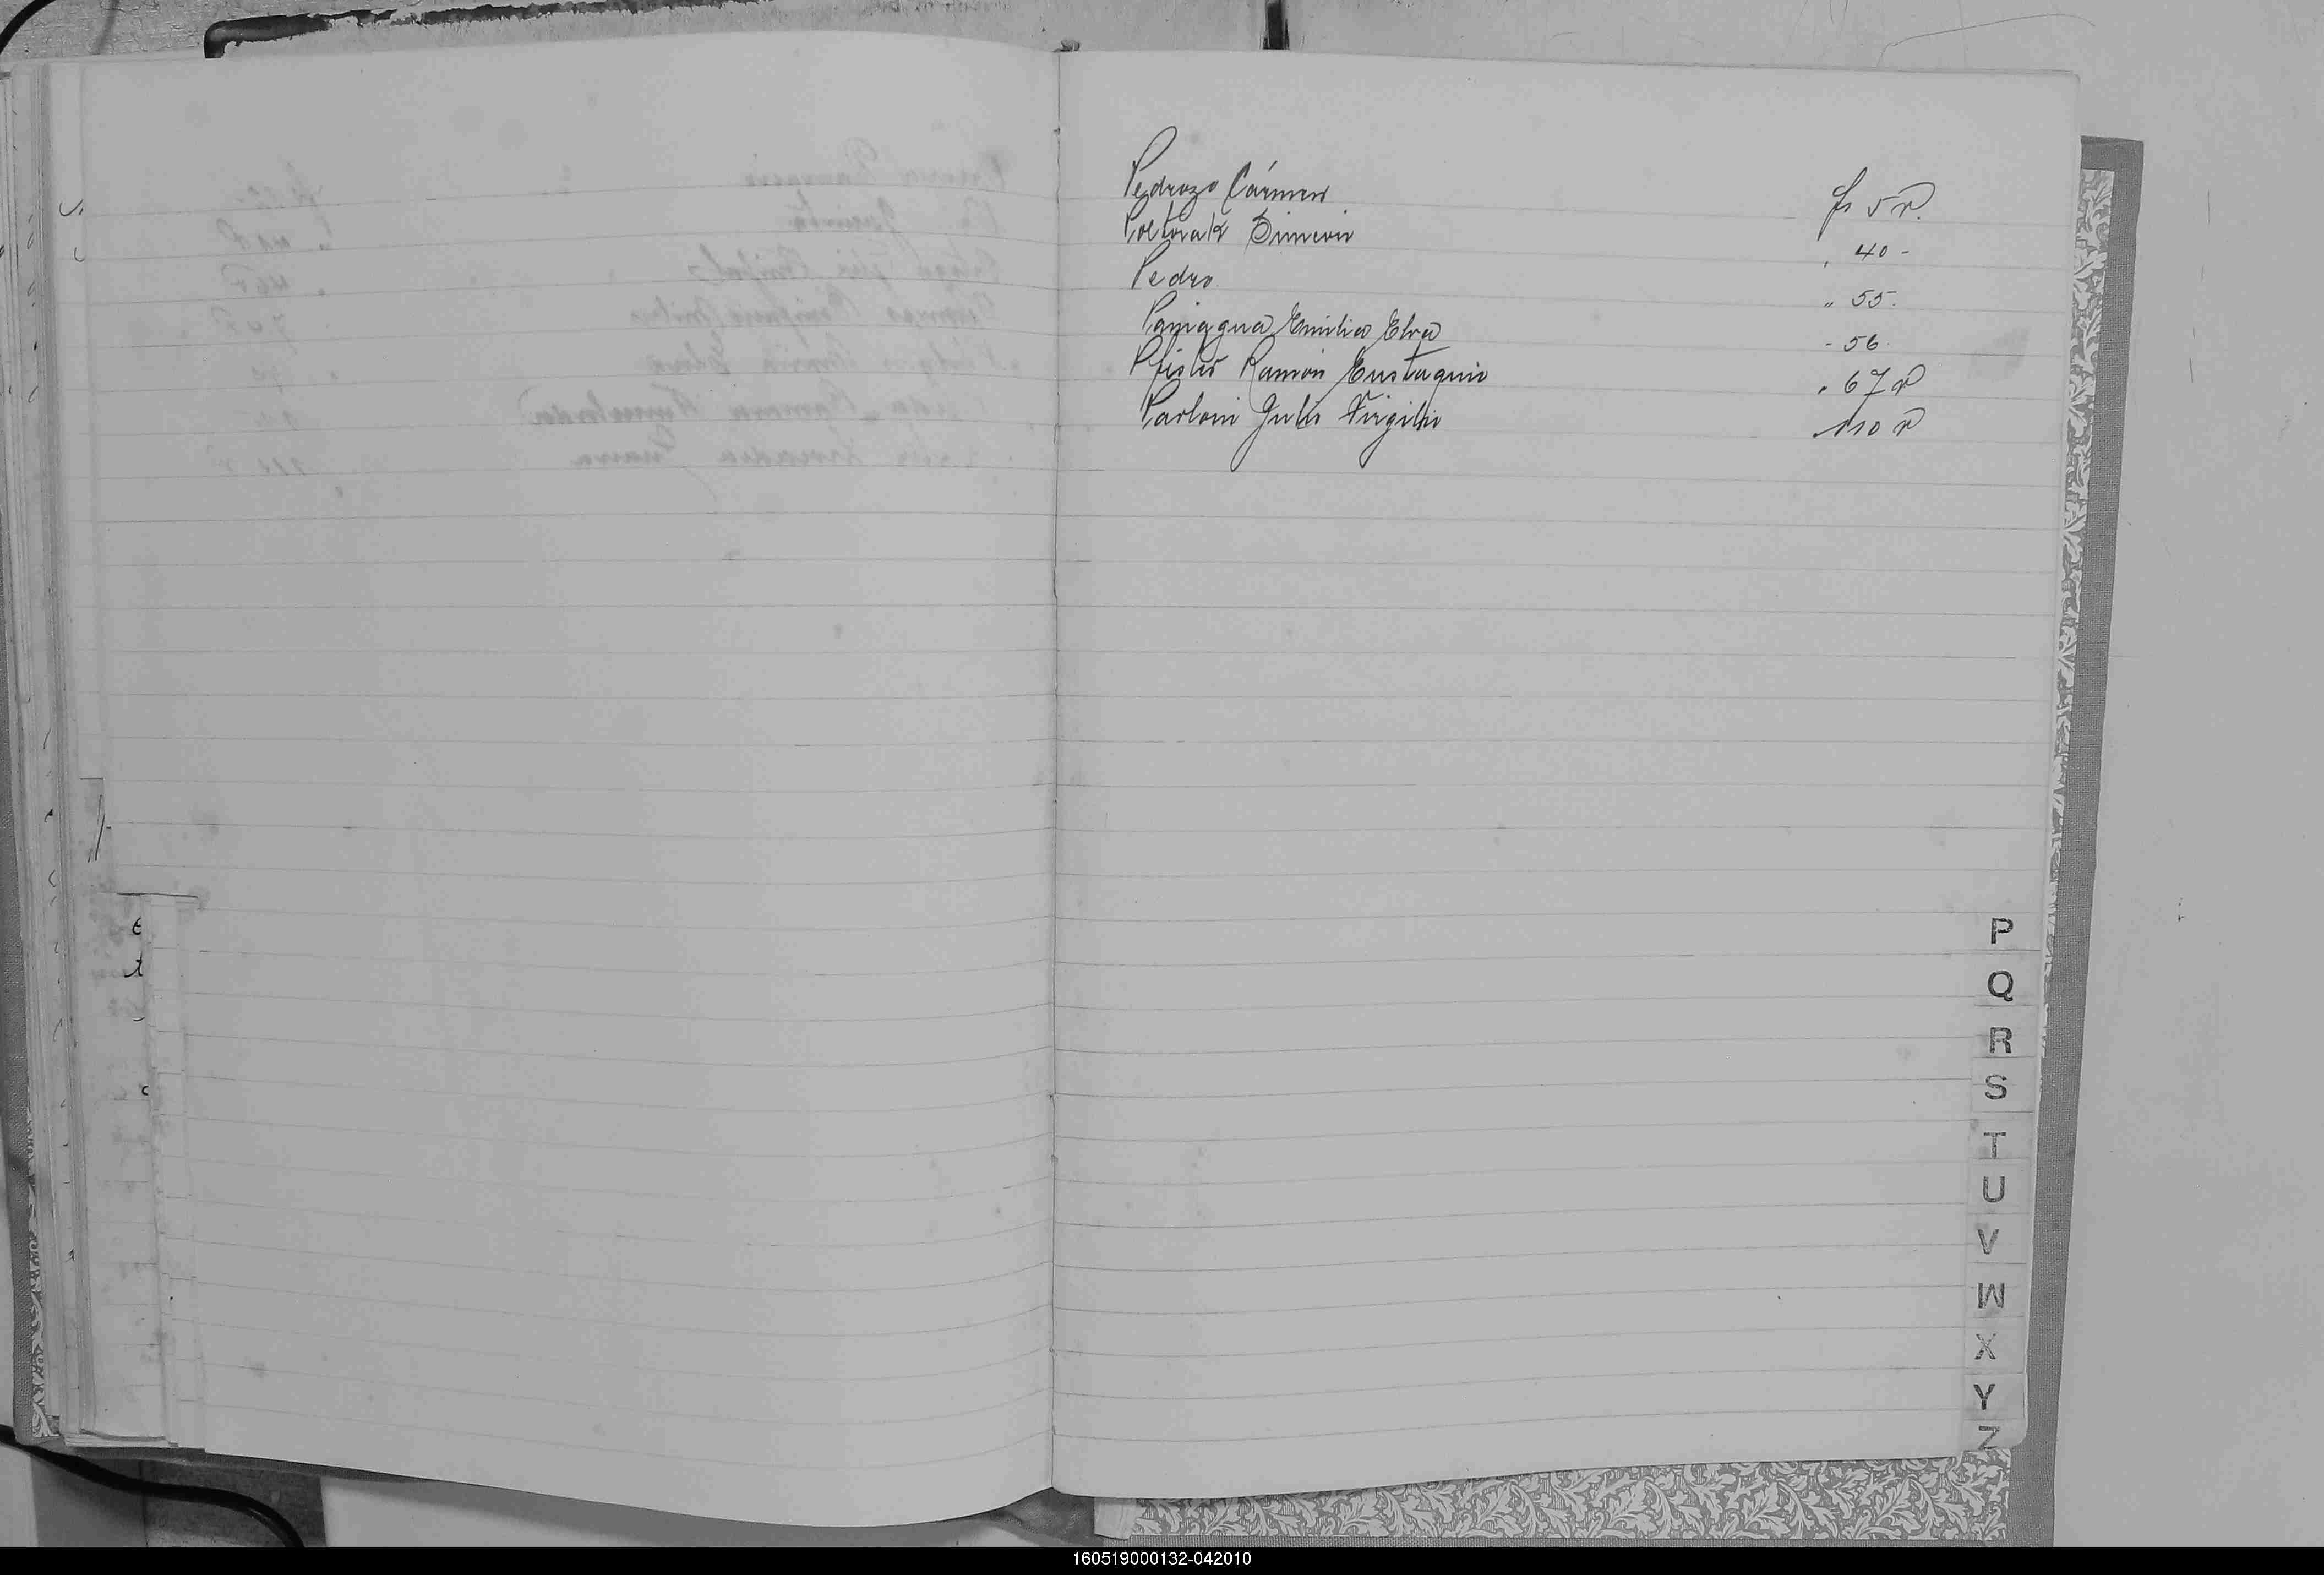 Pedrozo Cármen fs 5 v.
Poltorak Simeón " 40 -
Pedro " 55.
Paniagua Emilia Elva - 56.
Pfister Ramón Eustaquio " 67 v
Parloni Julio Virgilio 110 v
P
Q
R
S
T
U
V
W
X
Y
Z
160519000132-042010